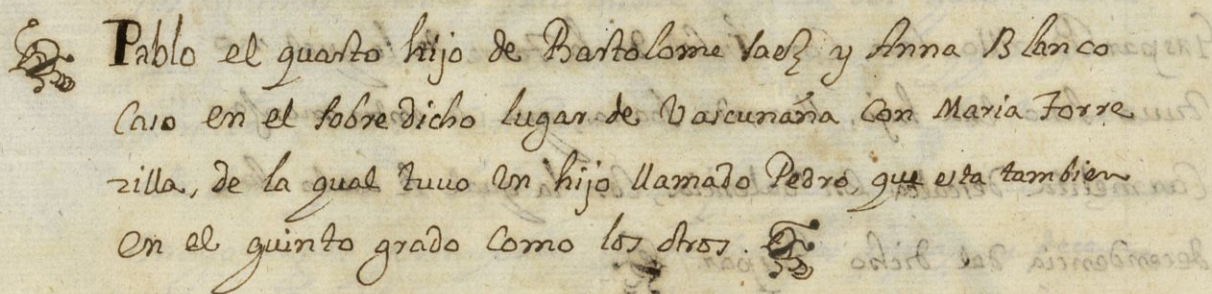 Pablo el quarto hijo de Bartolome saez y Anna Blanco
Caso en el sobredicho lugar de Vascunãna con Maria Torre
zilla, de la qual tuuo Vn hijo llamado Pedro, que esta tambien
en el quinto grado como los otros.